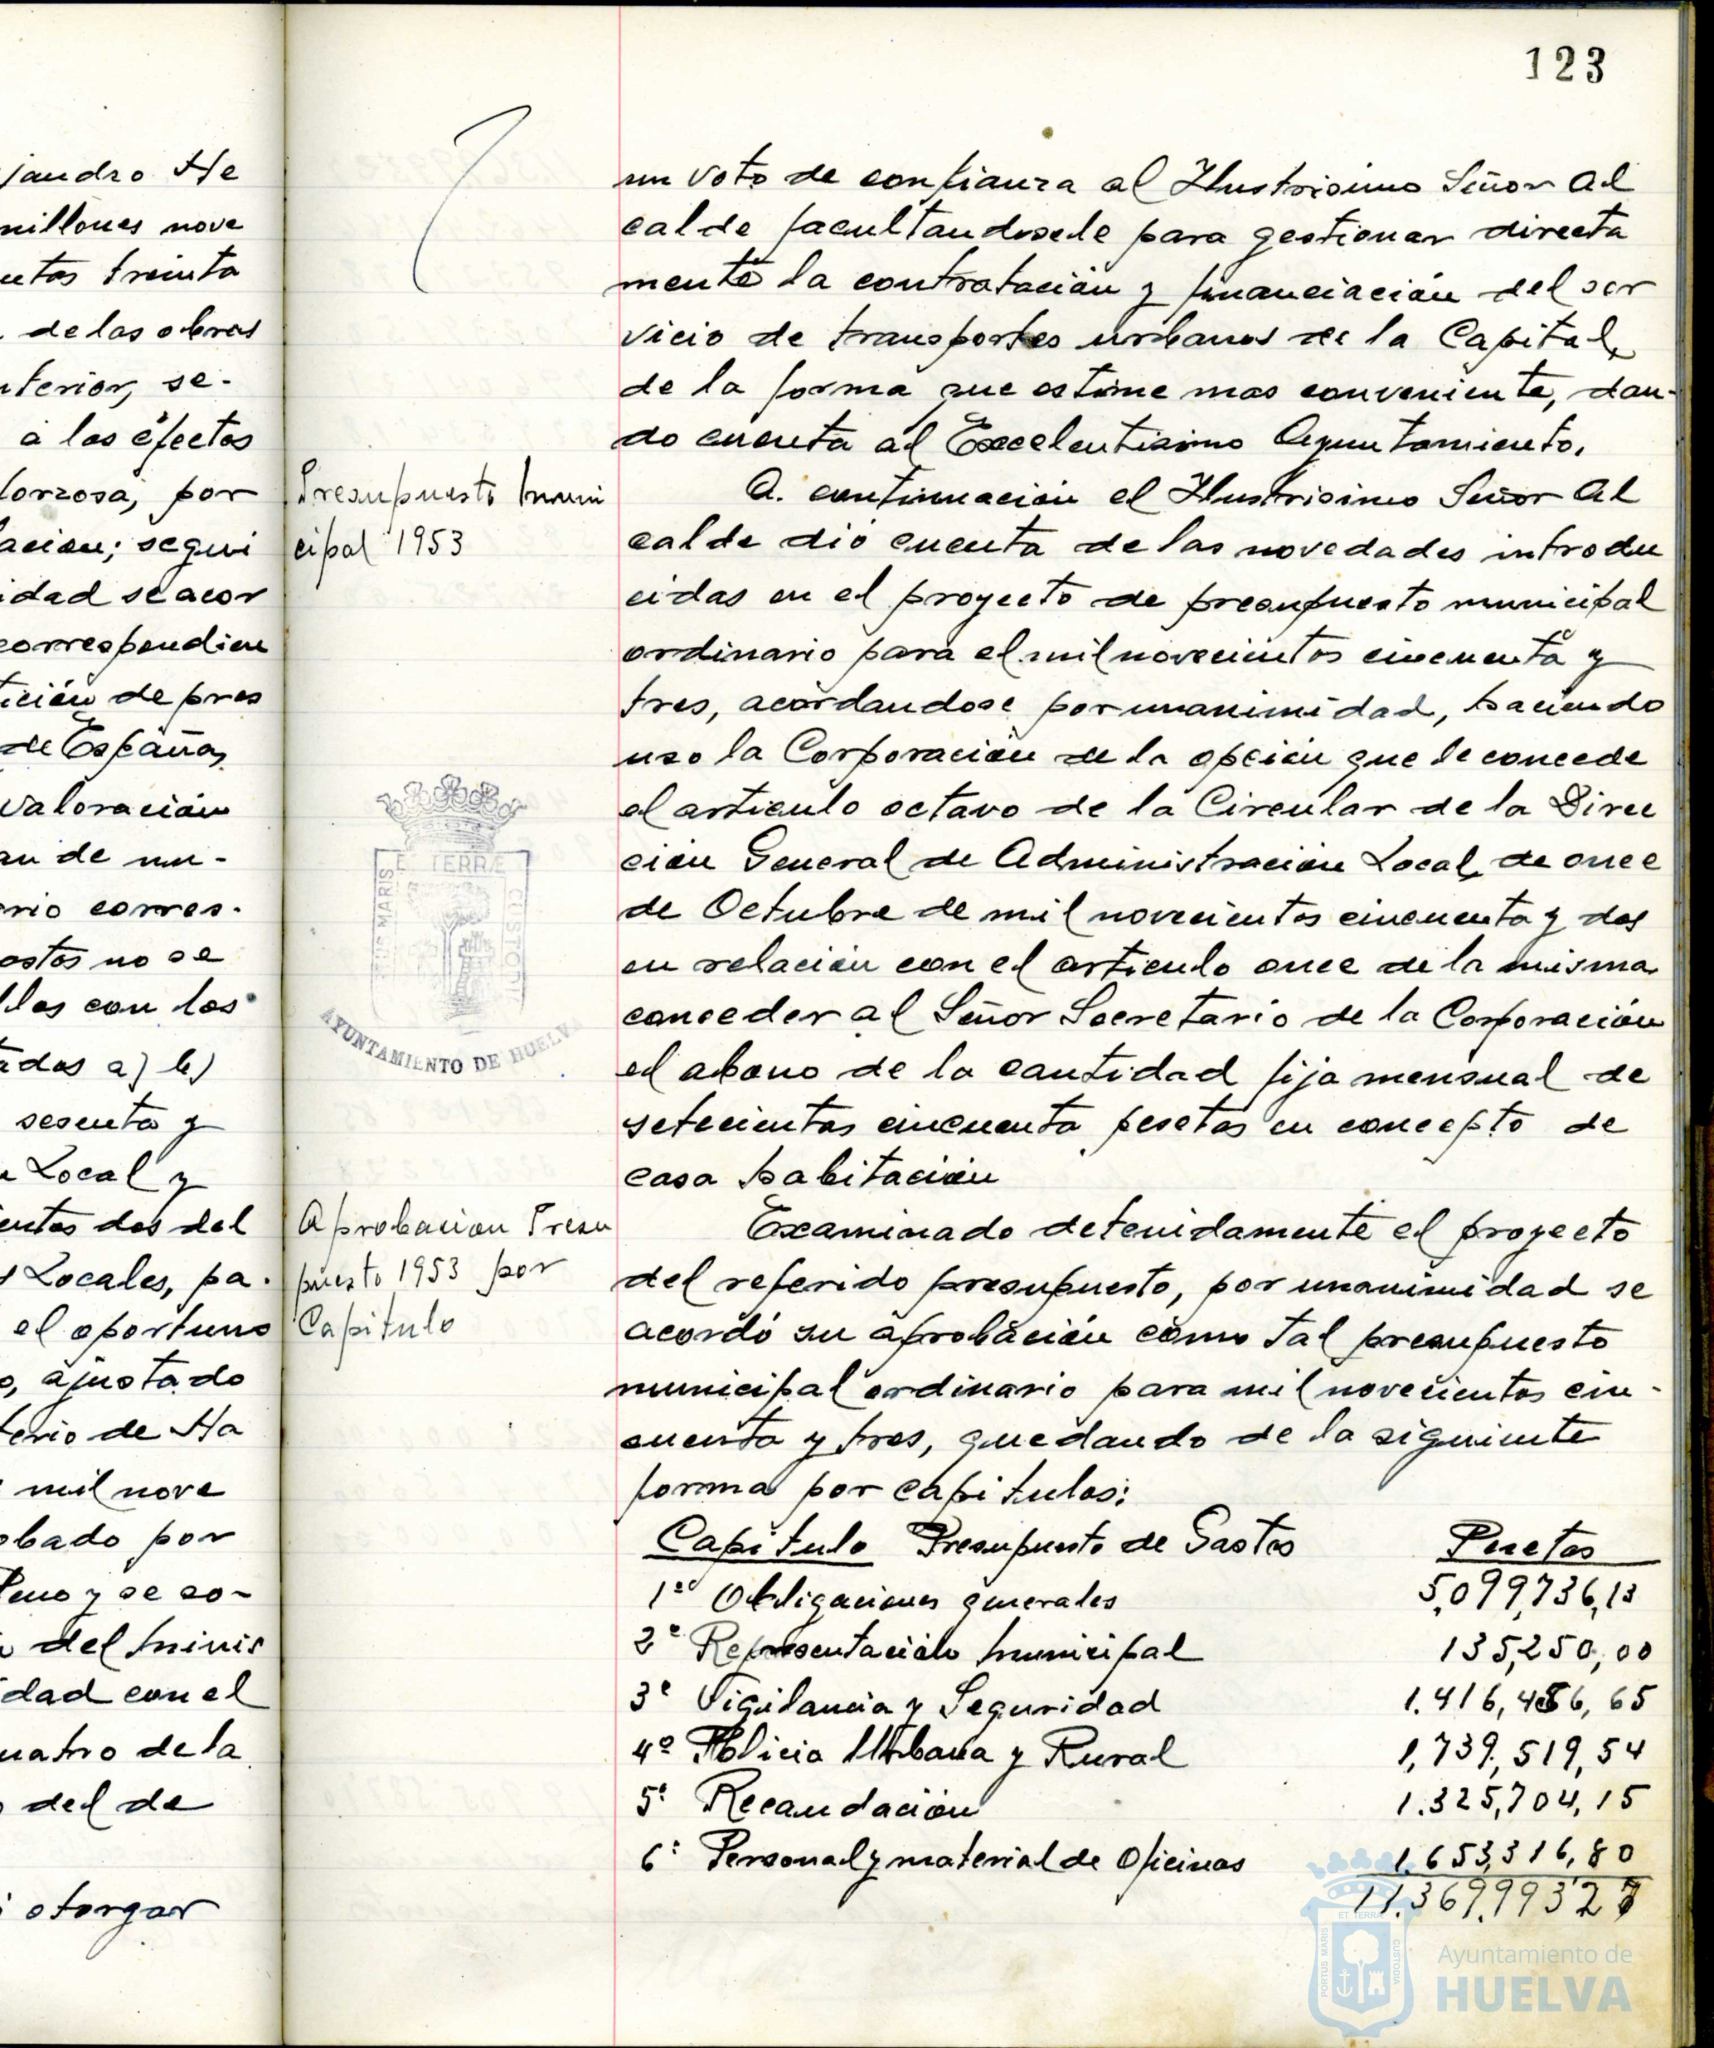 jandro He
millones nove
entos treinta
de las obras
nterior, se-
a los efectos
forzosa, por
lacion; segui
idad se acor
correspondien
tición de pres
de España,
valoración
an de nu-
ario corres-
ostos no se
llos con los
tados a) b)
sesenta y
n Local y
entos dos del
s Locales, pa-
el oportuno
o, ajustado
terio de Ha
mil nove
obado por
Pleno y se so-
del Minis
idad con el
cuatro de la
del de
otorgar
123
un voto de confianza al Ilustrisimo Señor Al
calde facultandosele para gestionar directa
mente la contratación y financiación del ser
vicio de transportes urbanos de la Capital,
de la forma que estime mas conveniente, dan-
do cuenta al Excelentisimo Ayuntamiento.
Presupuesto Muni
cipal 1953
A. continuación el Ilustrisimo Señor Al
calde dió cuenta de las novedades introdu
cidas en el proyecto de presupuesto municipal
ordinario para el mil novecientos cincuenta y
tres, acordandose por unanimidad, haciendo
uso la Corporación de la opción que le concede
el articulo octavo de la Circular de la Direc
ción General de Administración Local, de once
de Octubre de mil novecientos cincuenta y dos
en relación con el articulo once de la misma
conceder al Señor Secretario de la Corporación
el abono de la cantidad fija mensual de
setecientas cincuenta pesetas en concepto de
casa habitación
ET TERRÆ
PORTUS MARIS
CUSTODI
AYUNTAMIENTO DE HUELVA
Aprobacion Presu
puesto 1953 por
Capitulo
Examinado detenidamente el proyecto
del referido presupuesto, por unanimidad se
acordó su aprobación como tal presupuesto
municipal ordinario para mil novecientos cin-
cuenta y tres, quedando de la siguiente
forma por capitulos:
Capitulo Presupuesto de Gastos Pesetas
1º Obligaciones generales 5,099,736,13
2º Representación Municipal 135,250,00
3º Vigilancia y Seguridad 1.416,466,65
4º Policia Urbana y Rural 1,739,519,54
5º Recaudación 1.325,704,15
6º Personal y material de Oficinas 1.653,316,80
11.369,993 27
ET TERRA
PORTUS MARIS
CUSTODIA
Ayuntamiento de
HUELVA